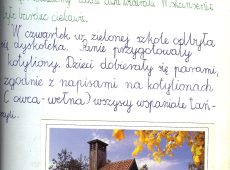 jest bardzo ciekawie.
W czwartek w zielonej szkole odbyła
się dyskoteka. Panie przygotowały
kotyliony. Dzieci dobierały się parami,
zgodnie z napisami na kotylionach
(owca-wełna) wszyscy wspaniale tań-
czyli.